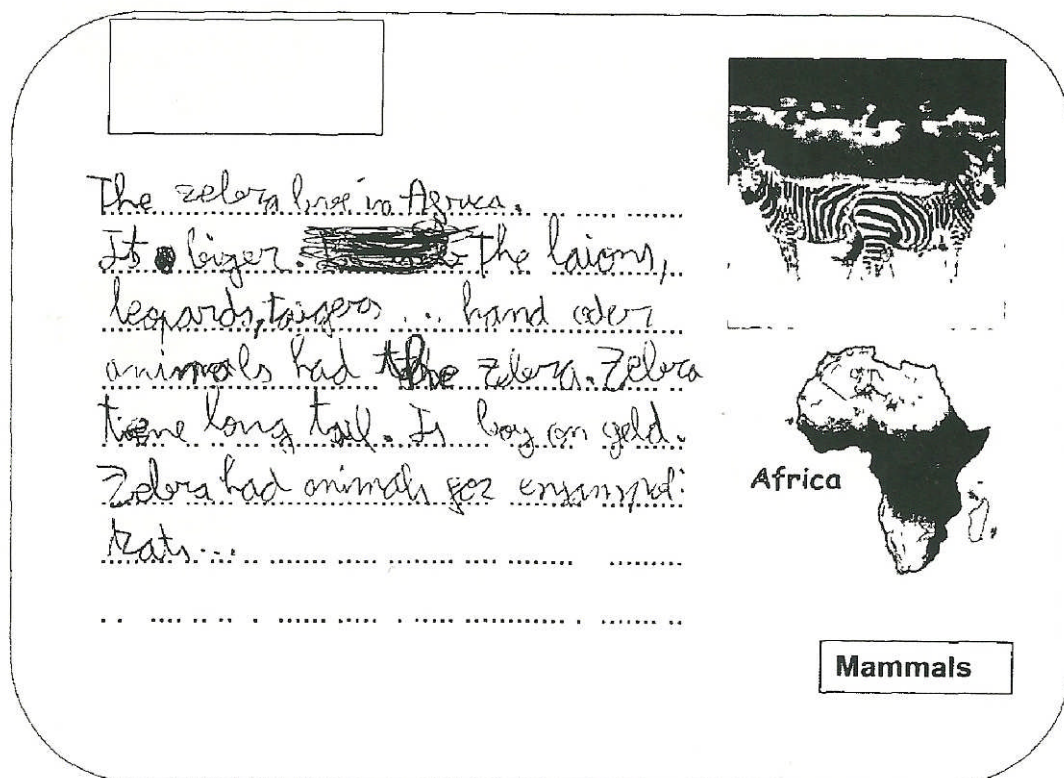 The zebra live in Africa.
It biger. The laions,
leopards, taigers ... hand oder
animals had the zebra. Zebra
tiene long tail. Is boy on geld.
Zebra had animals for ensanspol:
rats...
Africa
Mammals